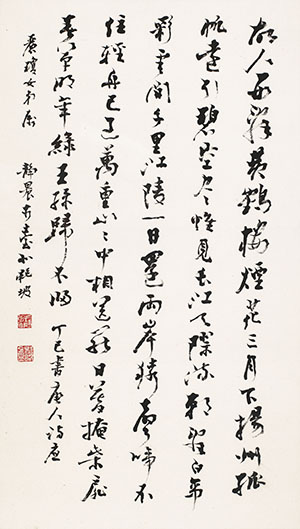 故人西辭黃鶴樓煙花三月下揚州孤
帆遠引碧空盡惟見長江天際流朝辭白帝
彩雲間千里江陵一日還兩岸猿聲啼不
住輕舟已過萬重山〻中相送罷日暮掩柴扉
春草明年綠王孫歸不歸 丁巳書唐人詩應
女弟屬 靜農於臺北龍坡